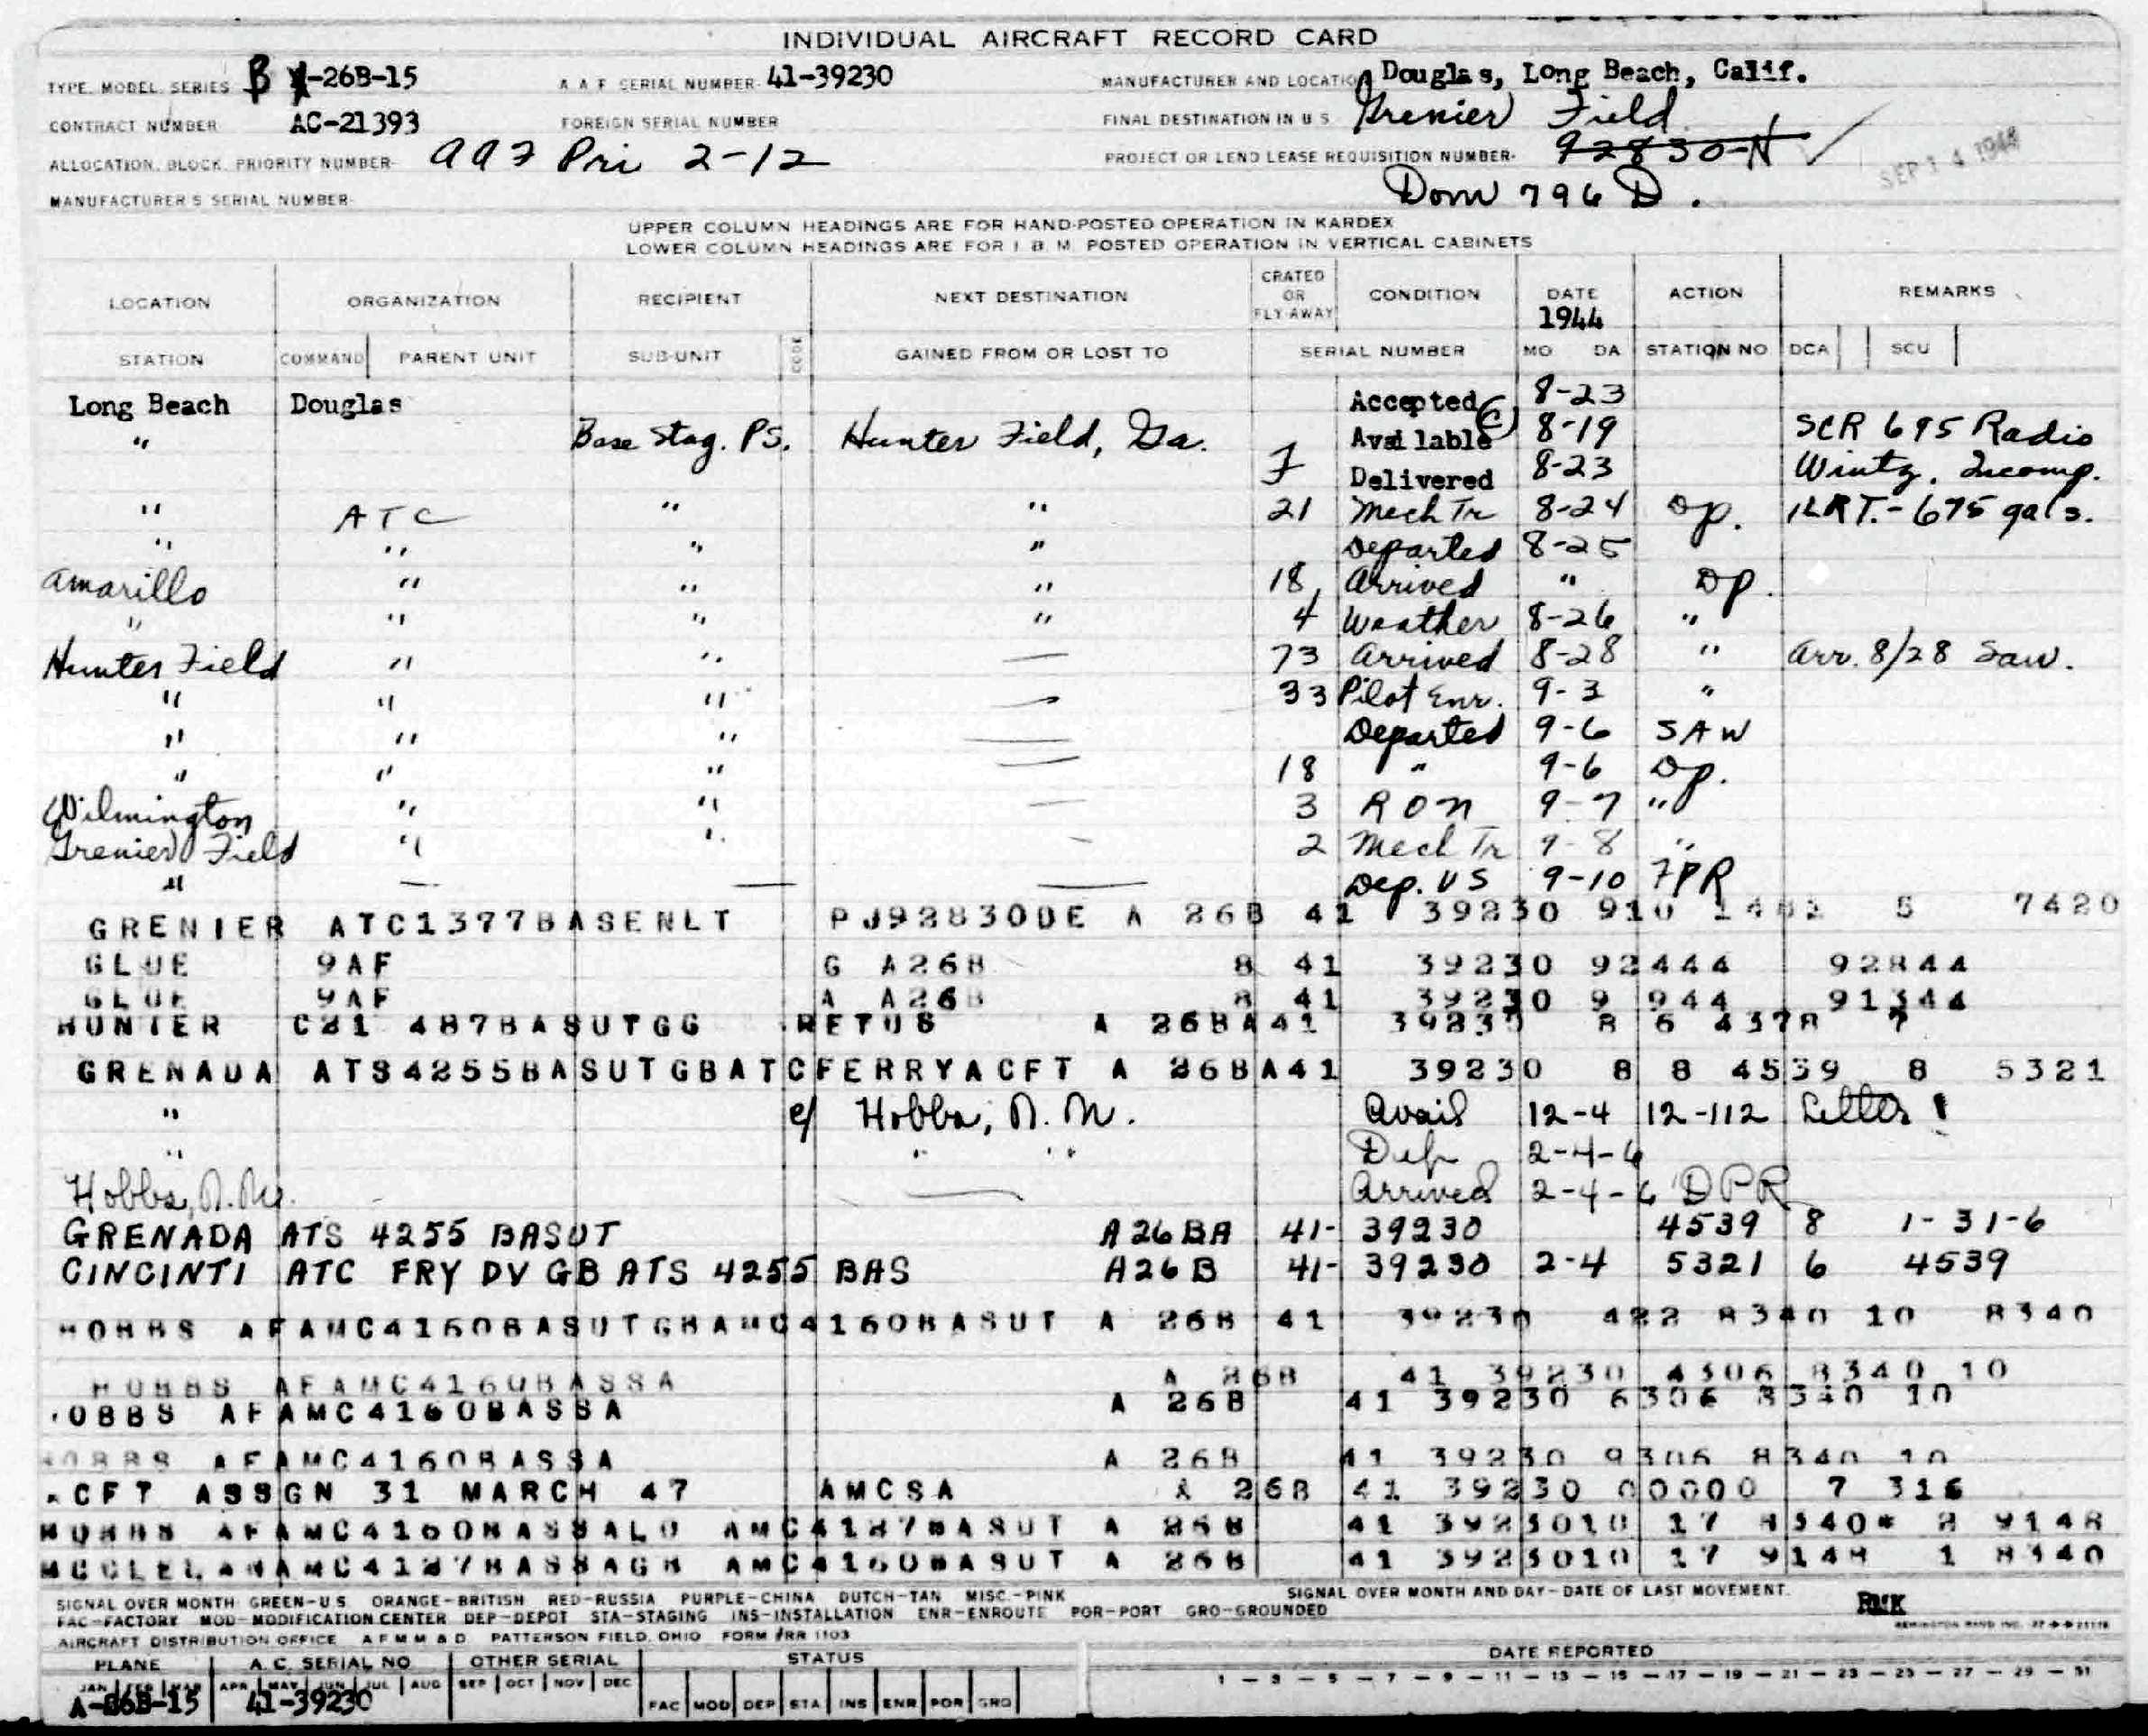 INDIVIDUAL AIRCRAFT RECORD CARD
TYPE, MODEL, SERIES B -26B-15 A A F SERIAL NUMBER 41-39230 MANUFACTURER AND LOCATION Douglas, Long Beach, Calif.
CONTRACT NUMBER AC-21393 FOREIGN SERIAL NUMBER FINAL DESTINATION IN U S Grenier Field
ALLOCATION, BLOCK, PRIORITY NUMBER- aaf Pri 2-12 PROJECT OR LEND LEASE REQUISITION NUMBER- 92830-N
SEP 14 1944
MANUFACTURER'S SERIAL NUMBER- Dom 796 D.
UPPER COLUMN HEADINGS ARE FOR HAND-POSTED OPERATION IN KARDEX
LOWER COLUMN HEADINGS ARE FOR I. B. M. POSTED OPERATION IN VERTICAL CABINETS
LOCATION ORGANIZATION RECIPIENT NEXT DESTINATION CRATED OR FLY-AWAY CONDITION DATE 1944 ACTION REMARKS
STATION COMMAND PARENT UNIT SUB-UNIT CODE GAINED FROM OR LOST TO SERIAL NUMBER MO DA STATION NO DCA SCU
Long Beach Douglas Accepted 8-23
" Base Stag. PS. Hunter Field, Ga. Available 8-19 SCR 695 Radio
F Delivered 8-23 Wintz. Incomp.
" ATC " " 21 Mech Tr 8-24 Dp. - 675 gals.
" " " " Departed 8-25
Amarillo " " " 18 Arrived " Dp.
" " " " 4 Weather 8-26 "
Hunter Field " " — 73 Arrived 8-28 " Arr. 8/28 Saw.
" " " — 33 Pilot Enr. 9-3 "
" " " — Departed 9-6 SAW
" " " — 18 " 9-6 Dp.
Wilmington " " — 3 RON 9-7 "
Grenier Field " " — 2 Mech Tr 9-8 "
" — — — Dep. US 9-10 FPR
GRENIER ATC1377BASENLT PJ92830DE A 26B 41 39230 910 1482 5 7420
GLUE 9AF G A26B 8 41 39230 92444 92844
GLUE 9AF A A26B 8 41 39230 9 944 91344
HUNTER 487BASUTGG RETUS A 26BA41 39230 8 6 4378 7
GRENADA ATS4255BASUTGBATCFERRYACFT A 26BA41 39230 8 8 4539 8 5321
" Hobbs, N. M. Avail 12-4 12-112 Letter
" " " Dep 2-4-6
Hobbs, N. M. — Arrived 2-4-6 DPR
GRENADA ATS 4255 BASUT A26BA 41- 39230 4539 8 1-31-6
CINCINTI ATC FRY DV GB ATS 4255 BAS A26B 41- 39230 2-4 5321 6 4539
HOBBS AFAMC4160BASUTGBAMC4160BASUT A 26B 41 39230 422 8340 10 8340
HOBBS AFAMC4160BASSA A 26B 41 39230 4306 8340 10
OBBS AFAMC4160BASSA A 26B 41 39230 6306 8340 10
HOBBS AFAMC4160BASSA A 26B 41 39230 9306 8340 10
ACFT ASSGN 31 MARCH 47 AMCSA A 26B 41 39230 00000 7 316
HOBBS AFAMC4160BASSALO AMC4127BASUT A 26B 41 3923010 17 8340* 2 9148
MCCLELANAMC4127BASSAGB AMC4160BASUT A 26B 41 3923010 17 9148 1 8340
SIGNAL OVER MONTH GREEN-U.S. ORANGE-BRITISH RED-RUSSIA PURPLE-CHINA DUTCH-TAN MISC.-PINK SIGNAL OVER MONTH AND DAY-DATE OF LAST MOVEMENT.
FAC-FACTORY MOD-MODIFICATION CENTER DEP-DEPOT STA-STAGING INS-INSTALLATION ENR-ENROUTE POR-PORT GRO-GROUNDED
AIRCRAFT DISTRIBUTION OFFICE A F M M & D PATTERSON FIELD, OHIO FORM #RR 1103
PLANE A. C. SERIAL NO OTHER SERIAL STATUS DATE REPORTED
JAN FEB MAR APR MAY JUN JUL AUG SEP OCT NOV DEC 1 — 3 — 5 — 7 — 9 — 11 — 13 — 15 — 17 — 19 — 21 — 23 — 25 — 27 — 29 — 31
A-26B-15 41-39230 FAC MOD DEP STA INS ENR POR GRO